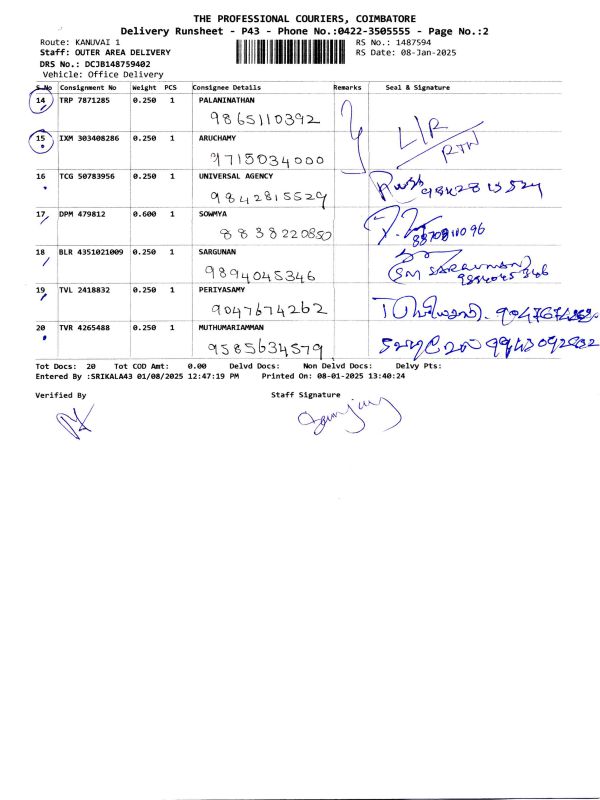 THE PROFESSIONAL COURIERS, COIMBATORE
Delivery Runsheet - P43 - Phone No.:0422-3505555 - Page No.:2
Route: KANUVAI 1 RS No.: 1487594
Staff: OUTER AREA DELIVERY RS Date: 08-Jan-2025
DRS No.: DCJB148759402
Vehicle: Office Delivery
S.No Consignment No Weight PCS Consignee Details Remarks Seal & Signature
14 TRP 7871285 0.250 1 PALANINATHAN
9865110392
L/R
RTN
15 IXM 303408286 0.250 1 ARUCHAMY
9715034000
16 TCG 50783956 0.250 1 UNIVERSAL AGENCY
9842815529 9842815529
17 DPM 479812 0.600 1 SOWMYA
8838220850 8870811096
18 BLR 4351021009 0.250 1 SARGUNAN
9894045346 9894045346
19 TVL 2418832 0.250 1 PERIYASAMY
9047674262
20 TVR 4265488 0.250 1 MUTHUMARIAMMAN
9585634579 9943092832
Tot Docs: 20 Tot COD Amt: 0.00 Delvd Docs: Non Delvd Docs: Delvy Pts:
Entered By :SRIKALA43 01/08/2025 12:47:19 PM Printed On: 08-01-2025 13:40:24
Verified By Staff Signature